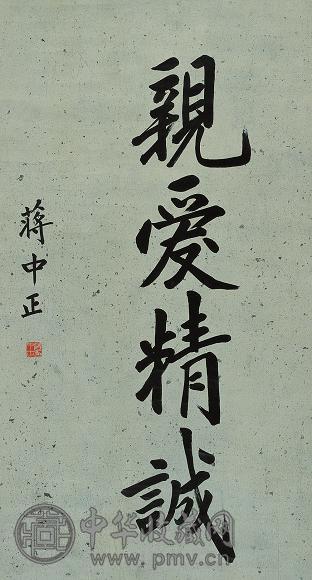 親愛精誠
蔣中正
中华收藏网
www.pmv.cn